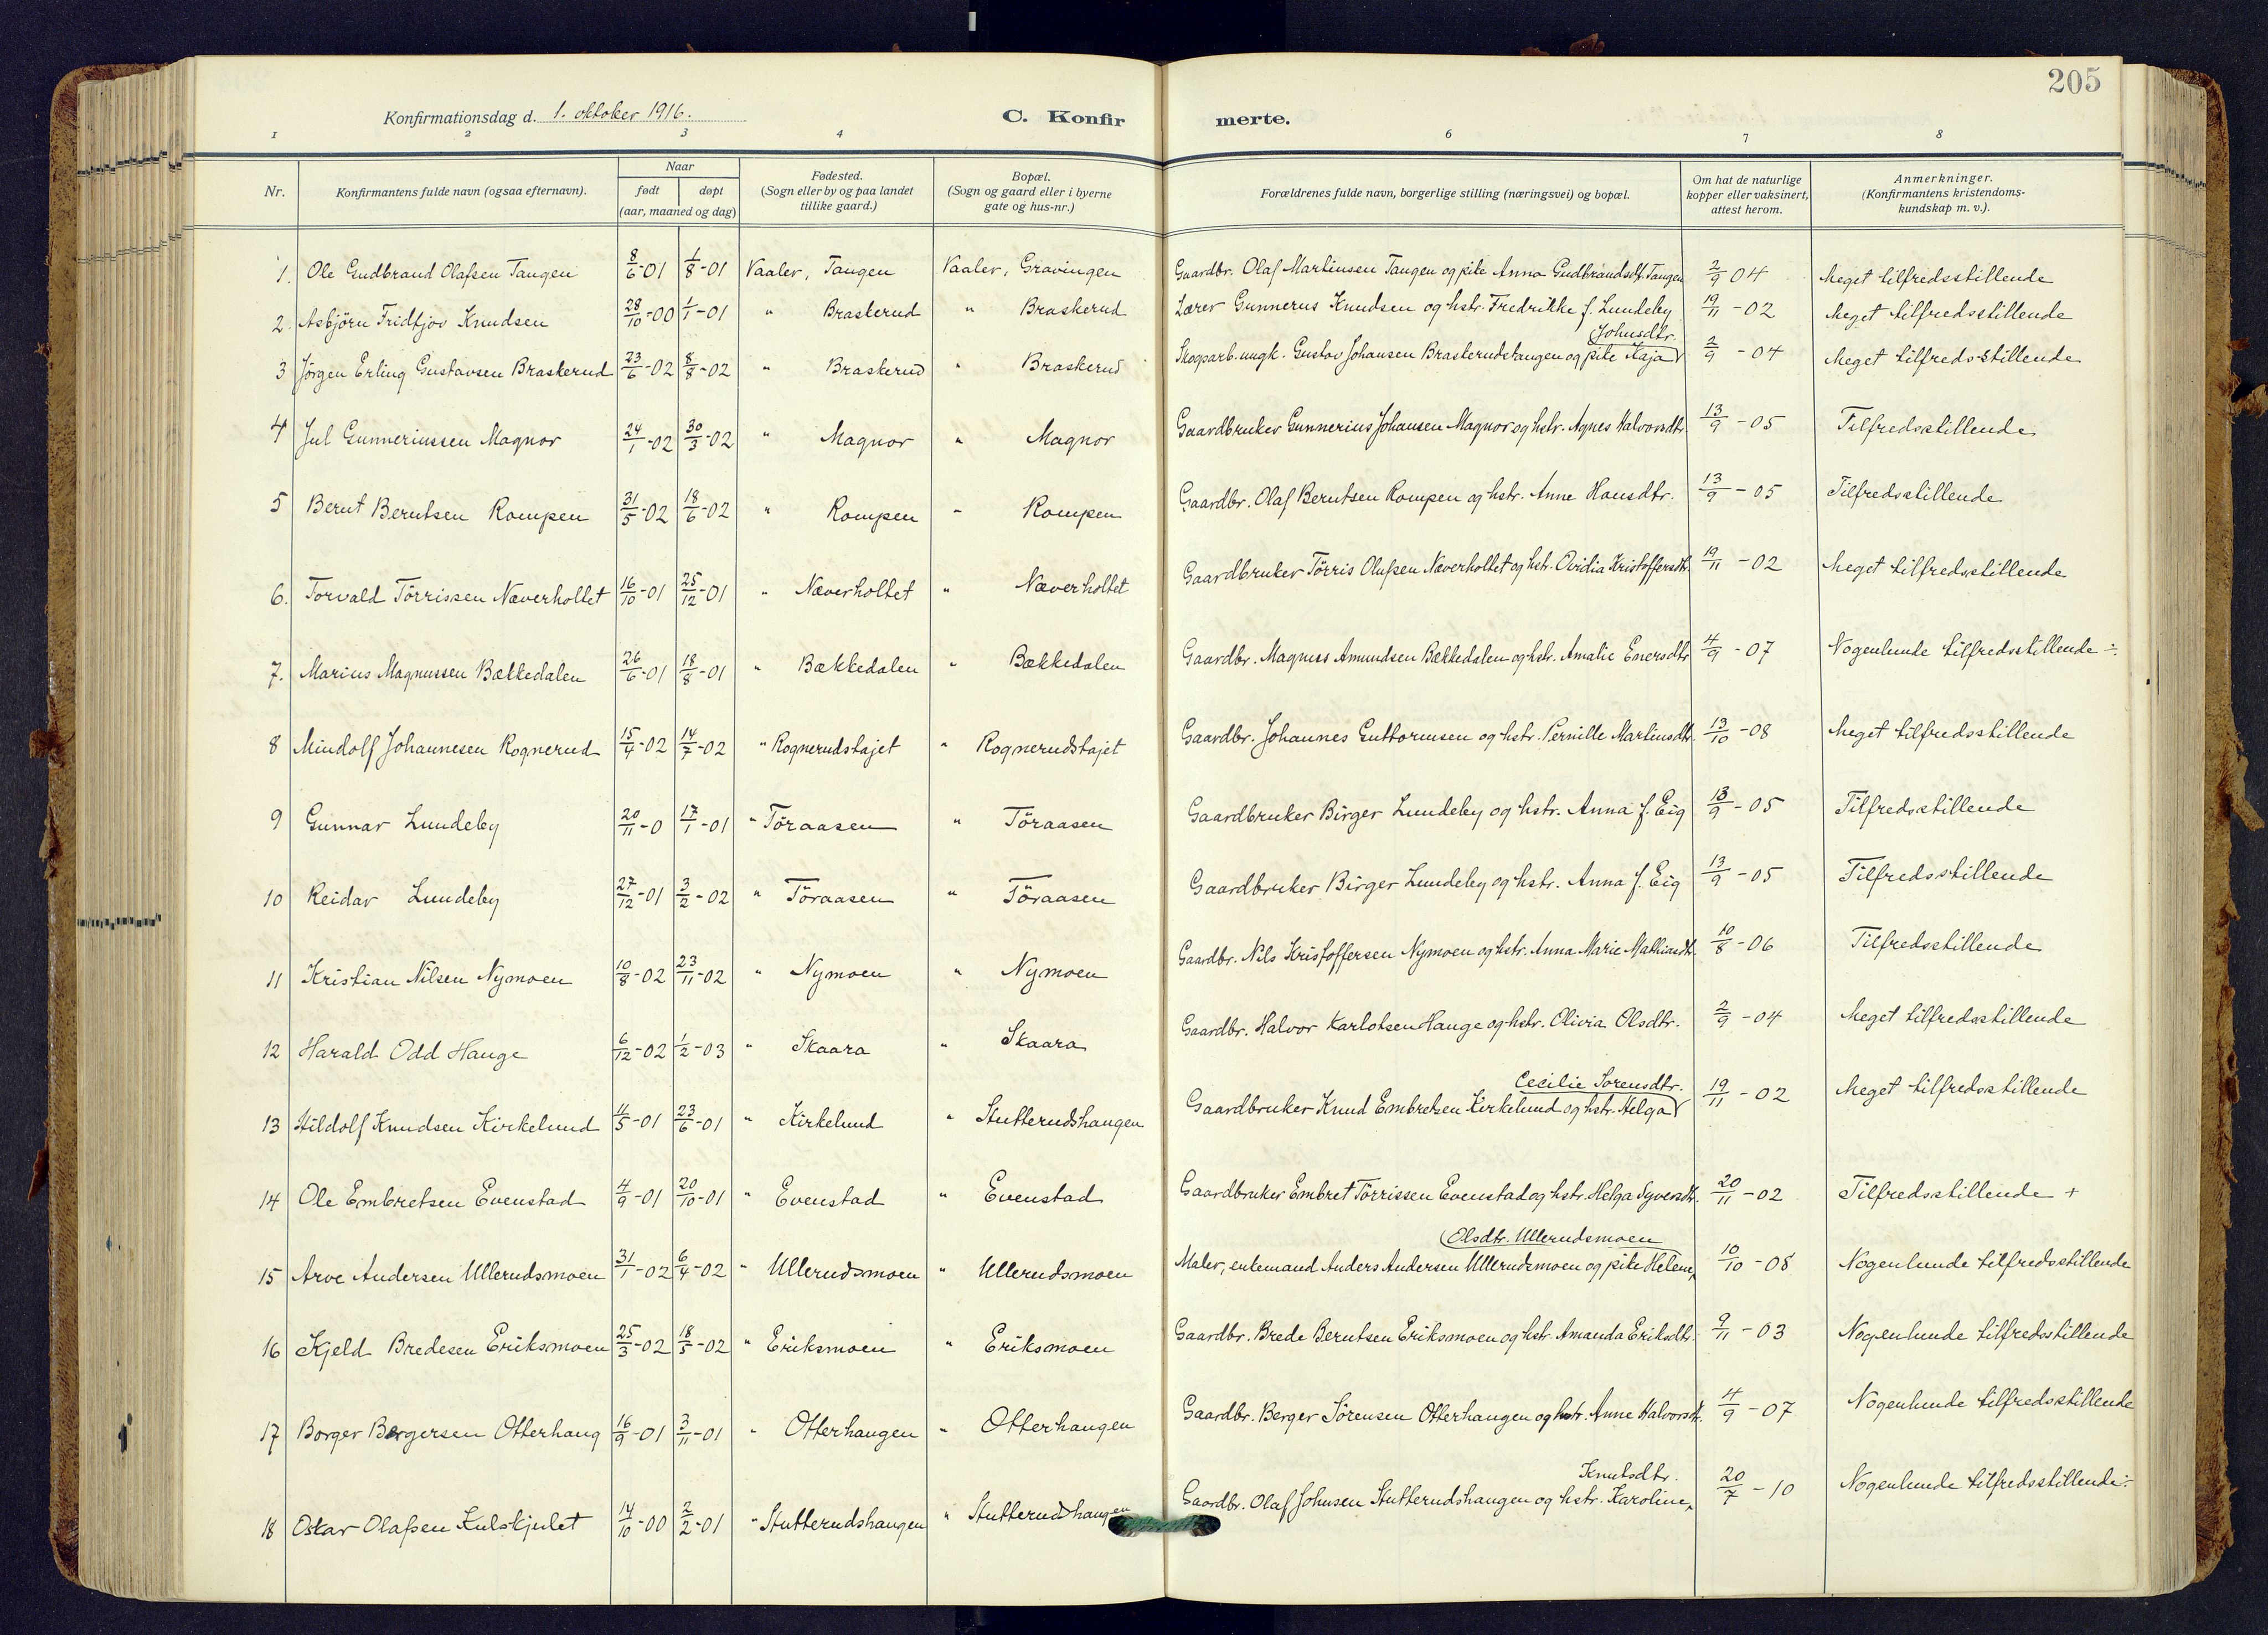 205
Konfirmationsdag d. 1. oktober 1916. C. Konfirmerte.
1 2 3 4 6 7 8
Nr. Konfirmantens fulde navn (ogsaa efternavn). Naar født døpt (aar, maaned og dag) Fødested. (Sogn eller by og paa landet tillike gaard.) Bopæl. (Sogn og gaard eller i byerne gate og hus-nr.) Forældrenes fulde navn, borgerlige stilling (næringsvei) og bopæl. Om hat de naturlige kopper eller vaksinert, attest herom. Anmerkninger. (Konfirmantens kristendomskundskap m. v.).
1. Ole Gudbrand Olafsen Tangen 8/6-01 1/8-01 Vaaler, Tangen Vaaler, Gravingen Gaardbr. Olaf Martinsen Tangen og pike Anna Gudbrandsdt. Tangen 2/9 04 Meget tilfredsstillende
2. Asbjörn Fridtjov Knudsen 28/10-00 1/1-01 " Braskerud " Braskerud Lærer Gunnerus Knudsen og hstr. Fredrikke f. Lundeby 19/11-02 Meget tilfredsstillende
3 Jörgen Erling Gustavsen Braskerud 23/6-02 8/8-02 " Braskerud " Braskerud Skogsarb. ungk. Gustav Johansen Braskerudstangen og pike Kaja Johnsdtr. 2/9-04 Meget tilfredsstillende
4 Jul Gunneriussen Magnor 24/1-02 30/3-02 " Magnor " Magnor Gaardbruker Gunnerius Johansen Magnor og hstr. Agnes Halvorsdtr. 13/9-05 Tilfredsstillende
5 Bernt Berntsen Rompen 31/5-02 18/6-02 " Rompen " Rompen Gaardbr. Olaf Berntsen Rompen og hstr. Anne Hansdtr. 13/9-05 Tilfredsstillende
6. Torvald Törrissen Næverholtet 16/10-01 25/12-01 " Næverholtet " Næverholtet Gaardbruker Törris Olufsen Næverholtet og hstr. Ovidia Kristoffersdtr. 19/11-02 Meget tilfredsstillende
7. Marius Magnussen Bækkedalen 26/6-01 18/8-01 " Bækkedalen " Bækkedalen Gaardbr. Magnus Amundsen Bækkedalen og hstr. Amalie Enersdtr 4/9-07 Nogenlunde tilfredsstillende ÷.
8 Mindolf Johannesen Rognerud 15/4-02 14/7-02 " Rognerudstajet " Rognerudstajet Gaardbr. Johannes Guttormsen og hstr. Pernille Martinsdtr. 13/10-08 Meget tilfredsstillende
9 Gunnar Lundeby 20/11-0 17/1-01 " Töraasen " Töraasen Gaardbruker Birger Lundeby og hstr. Anna f. Eig 13/9-05 Tilfredsstillende
10 Reidar Lundeby 27/12-01 3/2-02 " Töraasen " Töraasen Gaardbruker Birger Lundeby og hstr. Anna f. Eig 13/9-05 Tilfredsstillende
11 Kristian Nilsen Nymoen 10/8-02 23/11-02 " Nymoen " Nymoen Gaardbr. Nils Kristoffersen Nymoen og hstr. Anna Marie Mathiasdtr. 10/8-06 Tilfredsstillende
12 Harald Odd Hauge 6/12-02 1/2-03 " Skaara " Skaara Gaardbr. Halvor Karlotsen Hauge og hstr. Olivia Olsdtr. 2/9-04 Meget tilfredsstillende
13 Hildolf Knudsen Kirkelund 11/5-01 23/6-01 " Kirkelund " Stutterudshaugen Gaardbruker Knud Embretsen Kirkelund og hstr. Helga Cecilie Sorensdtr. 19/11-02 Meget tilfredsstillende
14 Ole Embretsen Evenstad 4/9-01 20/10-01 " Evenstad " Evenstad Gaardbruker Embret Törrissen Evenstad og hstr. Helga Syversdtr. 20/11-02 Tilfredsstillende +
15 Arve Andersen Ullerudsmoen 31/1-02 6/4-02 " Ullerudsmoen " Ullerudsmoen Maler, enkemand Anders Andersen Ullerudsmoen og pike Helene, Olsdtr. Ullerudsmoen 10/10-08 Nogenlunde tilfredsstillende
16 Kjeld Bredesen Eriksmoen 25/3-02 18/5-02 " Eriksmoen " Eriksmoen Gaardbr. Brede Berntsen Eriksmoen og hstr. Amanda Eriksdtr. 9/11-03 Nogenlunde tilfredsstillende
17 Borger Bergersen Otterhaug 16/9-01 3/11-01 " Otterhaugen " Otterhaugen Gaardbr. Berger Sörensen Otterhaugen og hstr. Anne Halvorsdt. 4/9-07 Nogenlunde tilfredsstillende
18 Oskar Olafsen Kulskjulet 14/10-00 2/2-01 " Stutterudshaugen " Stutterudshaugen Gaardbr. Olaf Johnsen Stutterudshaugen og hstr. Karoline, Knutsdtr. 20/7-10 Nogenlunde tilfredsstillende ÷